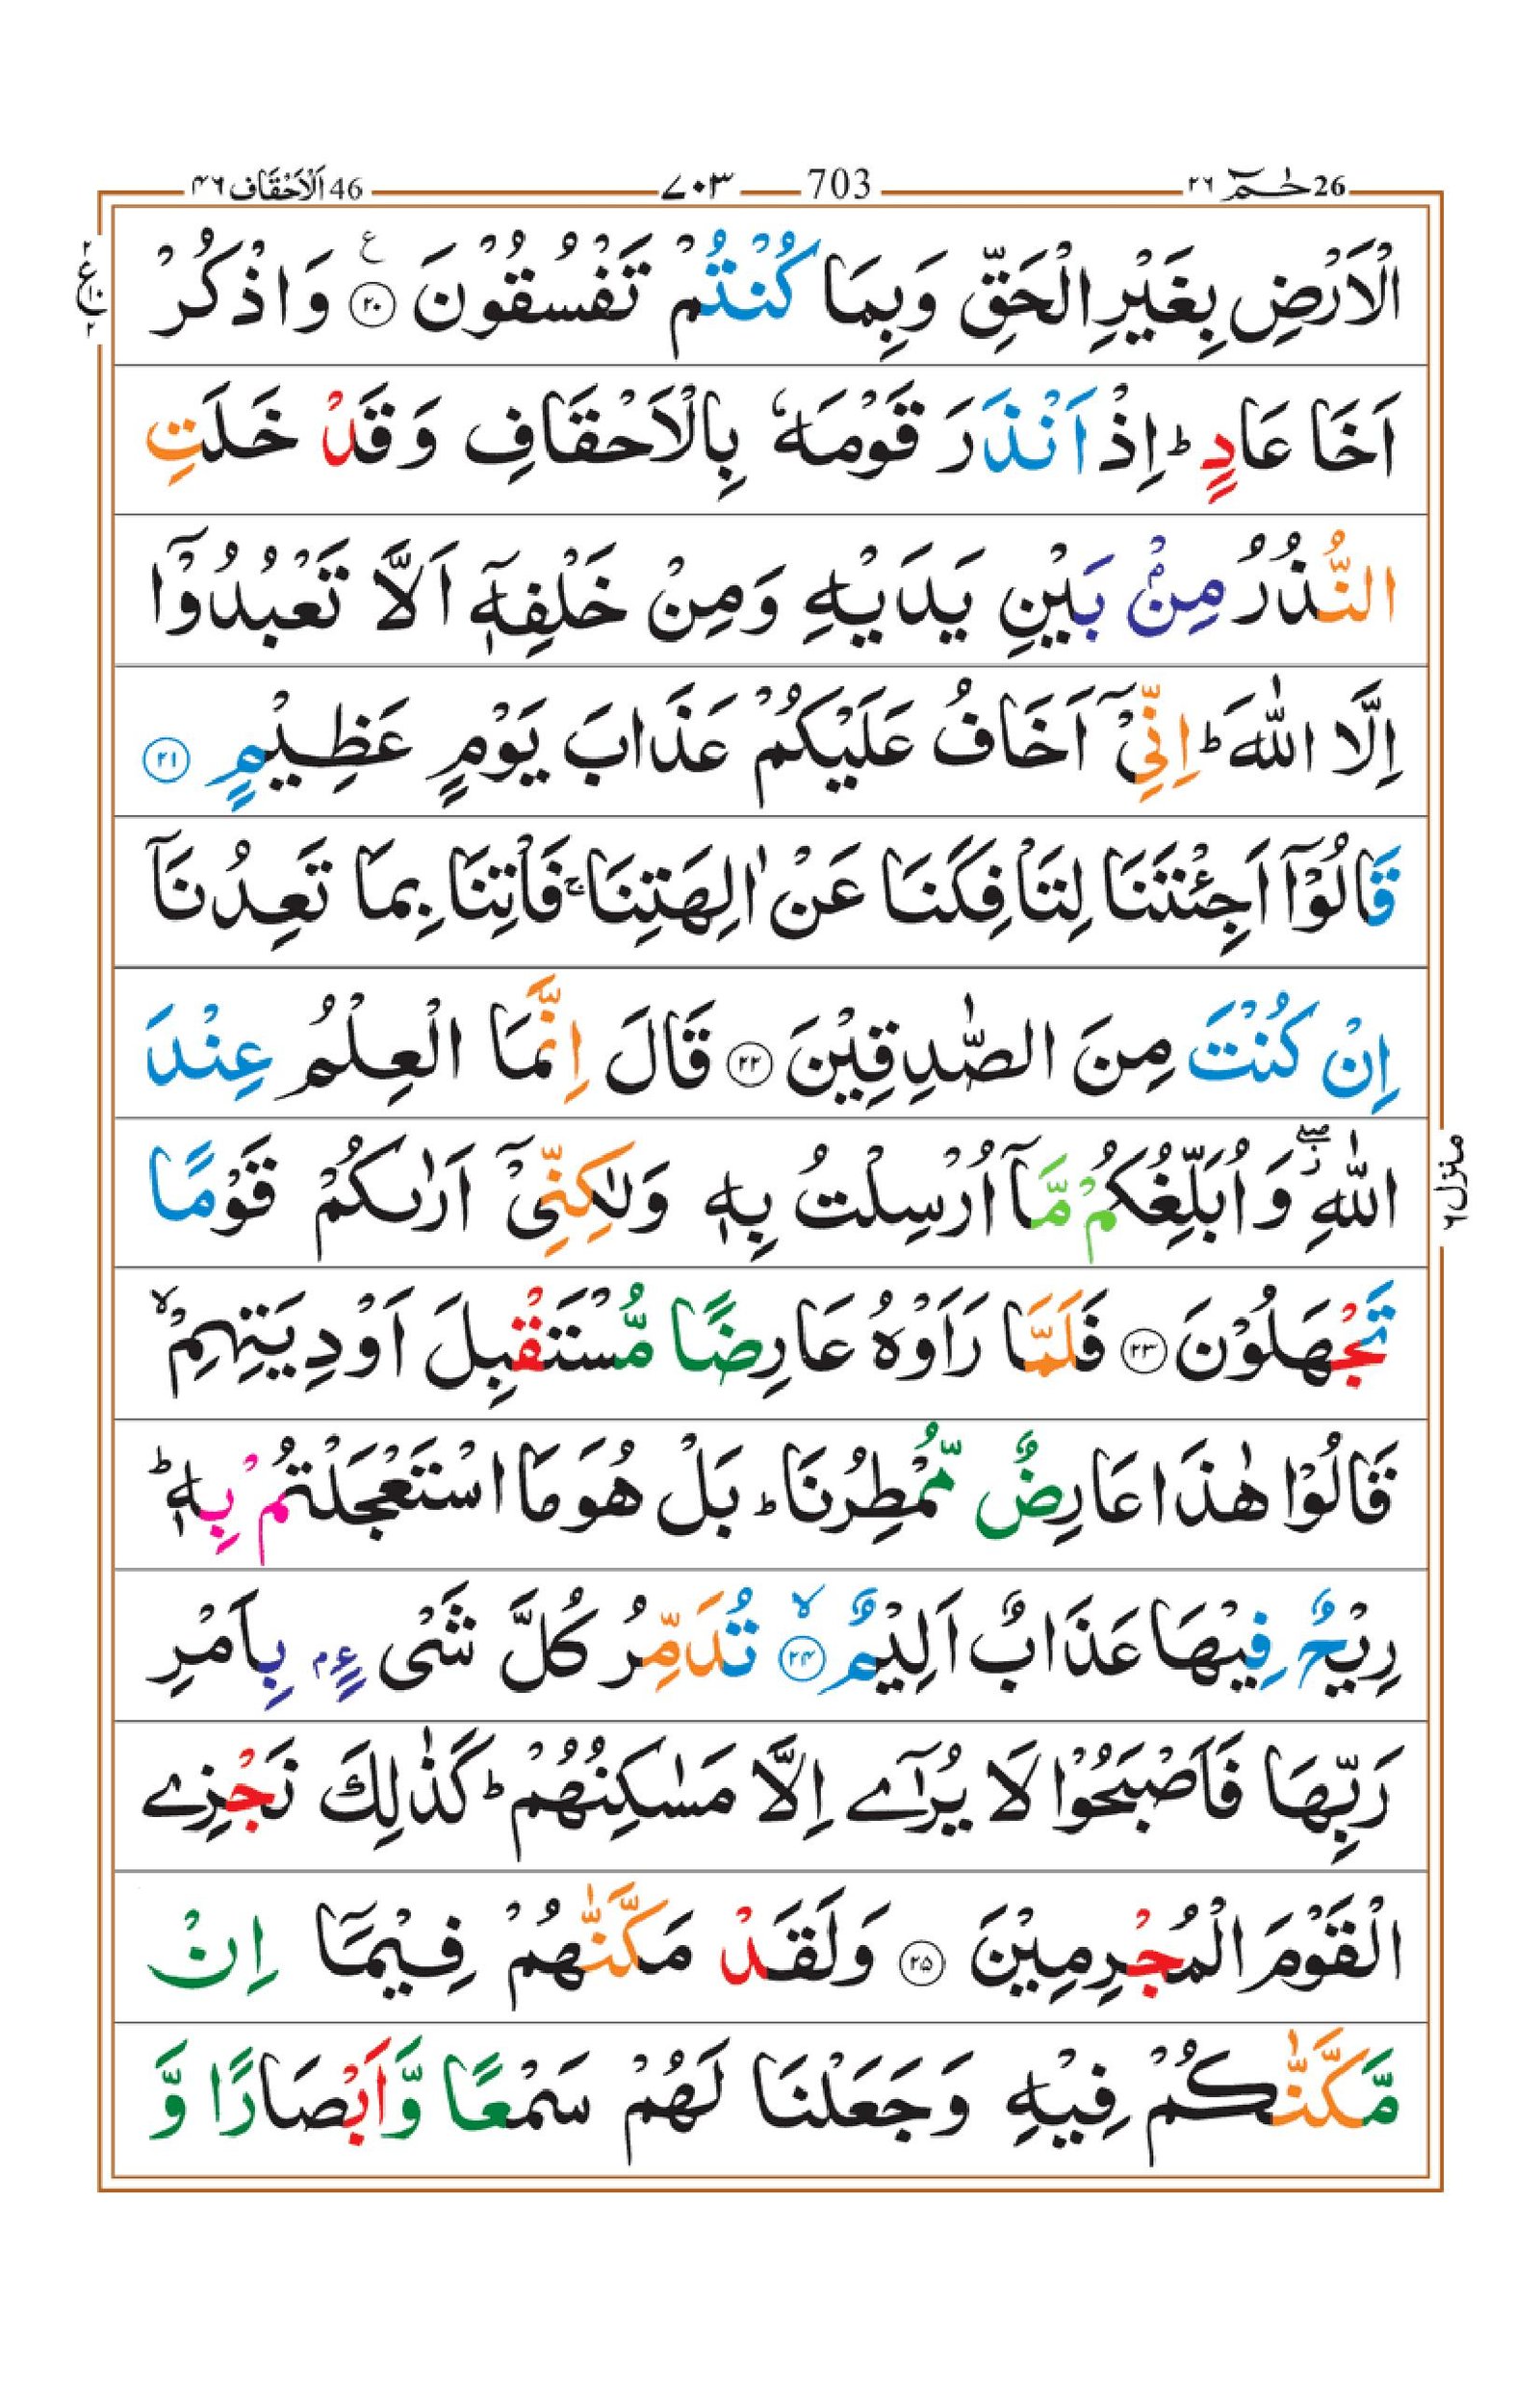 26 حٰـمٓ ۲۶ 703 ۷۰۳ 46 اَلْاَحْقَاف ۴۶
الْاَرْضِ بِغَيْرِ الْحَقِّ وَبِمَا كُنْتُمْ تَفْسُقُوْنَ ۲۰ ع وَاذْكُرْ
ع ۲ ۱۰ ۲
اَخَا عَادٍ ؕ اِذْ اَنْذَرَ قَوْمَهٗ بِالْاَحْقَافِ وَقَدْ خَلَتِ
النُّذُرُ مِنْۢ بَيْنِ يَدَيْهِ وَمِنْ خَلْفِهٖۤ اَلَّا تَعْبُدُوْۤا
اِلَّا اللّٰهَ ؕ اِنِّىْۤ اَخَافُ عَلَيْكُمْ عَذَابَ يَوْمٍ عَظِيْمٍ ۲۱
قَالُوْۤا اَجِئْتَنَا لِتَاْفِكَنَا عَنْ اٰلِهَتِنَا ۚ فَاْتِنَا بِمَا تَعِدُنَاۤ
اِنْ كُنْتَ مِنَ الصّٰدِقِيْنَ ۲۲ قَالَ اِنَّمَا الْعِلْمُ عِنْدَ
اللّٰهِ ۖؗ وَاُبَلِّغُكُمْ مَّاۤ اُرْسِلْتُ بِهٖ وَلٰكِنِّىْۤ اَرٰىكُمْ قَوْمًا
منزل ۶
تَجْهَلُوْنَ ۲۳ فَلَمَّا رَاَوْهُ عَارِضًا مُّسْتَقْبِلَ اَوْدِيَتِهِمْ ۙ
قَالُوْا هٰذَا عَارِضٌ مُّمْطِرُنَا ؕ بَلْ هُوَ مَا اسْتَعْجَلْتُمْ بِهٖ ؕ
رِيْحٌ فِيْهَا عَذَابٌ اَلِيْمٌ ۙ ۲۴ تُدَمِّرُ كُلَّ شَىْءٍۢ بِاَمْرِ
رَبِّهَا فَاَصْبَحُوْا لَا يُرٰٓے اِلَّا مَسٰكِنُهُمْ ؕ كَذٰلِكَ نَجْزِے
الْقَوْمَ الْمُجْرِمِيْنَ ۲۵ وَلَقَدْ مَكَّنّٰهُمْ فِيْمَاۤ اِنْ
مَّكَّنّٰكُمْ فِيْهِ وَجَعَلْنَا لَهُمْ سَمْعًا وَّاَبْصَارًا وَّ